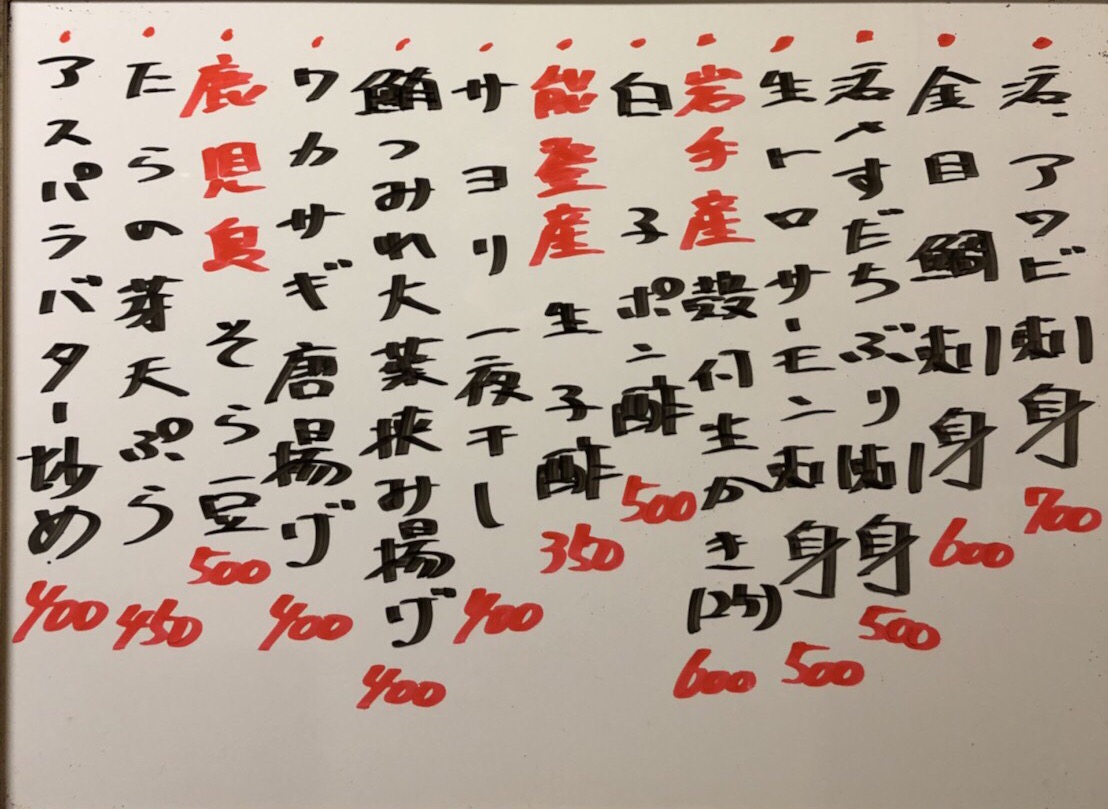 ・活アワビ刺身 700
・金目鯛刺身 600
・活〆すだちぶり刺身 500
・生トロサーモン刺身 500
・岩手産 殻付生かき(2ケ) 600
・白子ポン酢 500
・能登産 生子酢 350
・サヨリ一夜干し 400
・鮪つみれ大葉挟み揚げ 400
・ワカサギ唐揚げ 400
・鹿児島 そら豆 500
・たらの芽天ぷら 450
・アスパラバター炒め 400